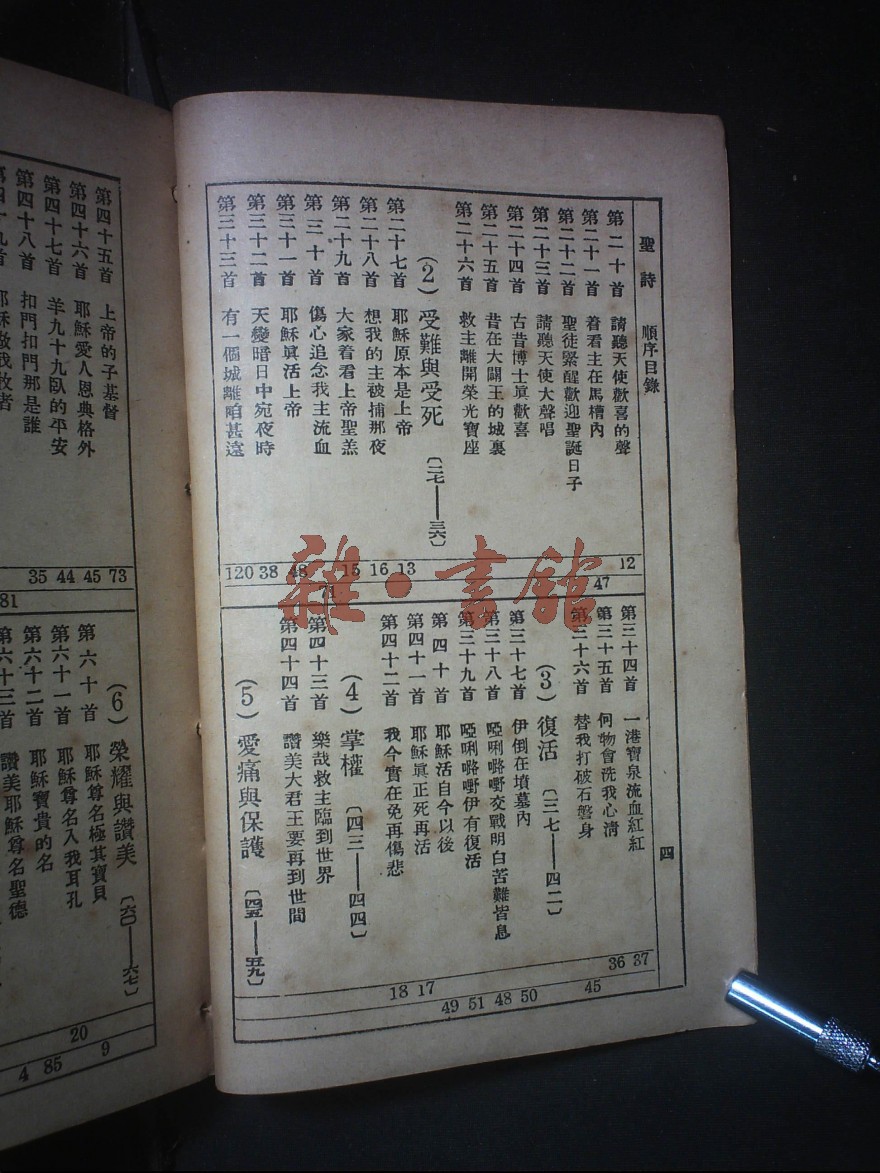 聖詩 順序目錄
四
第二十首 請聽天使歡喜的聲 12
第二十一首 着看主在馬槽內 47
第二十二首 聖徒緊醒歡迎聖誕日子
第二十三首 請聽天使大聲唱
第二十四首 古昔博士眞歡喜
第二十五首 昔在大闢王的城裏
第二十六首 救主離開榮光寶座
(2) 受難與受死 〔二七——三六〕
第二十七首 耶穌原本是上帝 13
第二十八首 想我的主被捕那夜 16
第二十九首 大家着看上帝聖羔 15
第三十首 傷心追念我主流血 71
第三十一首 耶穌眞活上帝 48
第三十二首 天變暗日中宛夜時 38
第三十三首 有一個城離咱甚遠 120
第三十四首 一港寶泉流血紅紅 37
第三十五首 何物會洗我心淸 36
第三十六首 替我打破石磐身 45
(3) 復活 〔三七——四二〕
第三十七首 伊倒在墳墓內 50
第三十八首 啞唎嚕嘢交戰明白苦難皆息 48
第三十九首 啞唎嚕嘢伊有復活 51
第四十首 耶穌活自今以後 49
第四十一首 耶穌眞正死再活 17
第四十二首 我今實在免再傷悲 18
(4) 掌權 〔四三——四四〕
第四十三首 樂哉救主臨到世界
第四十四首 讚美大君王要再到世間
(5) 愛痛與保護 〔四五——五九〕
第四十五首 上帝的子基督 73
第四十六首 耶穌愛人恩典格外 45
第四十七首 羊九十九臥的平安 44
第四十八首 扣門扣門那是誰 35
81
(6) 榮耀與讚美 〔六〇——六七〕
第六十首 耶穌尊名極其寶貝 9
第六十一首 耶穌尊名入我耳孔 20
第六十二首 耶穌寶貴的名 85
第六十三首 讚美耶穌尊名聖德 4
雜·書館